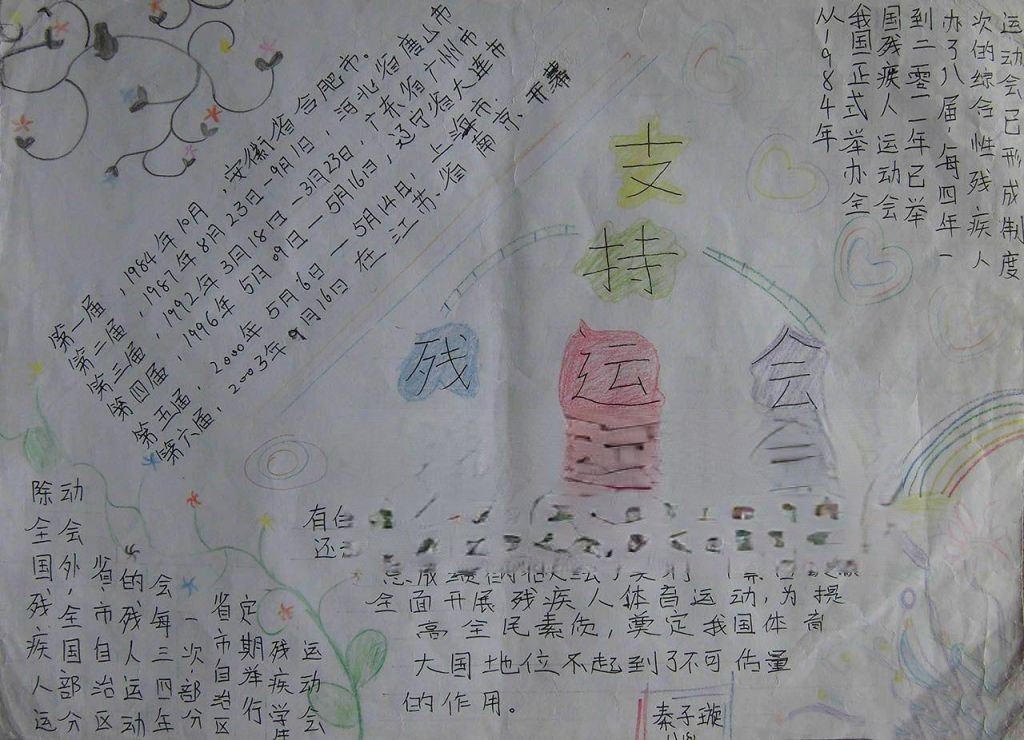 第一届，1984年10月，安徽省合肥市。
第二届，1987年8月23日-9月1日，河北省唐山市
第三届，1992年3月18日-3月23日，广东省广州市
第四届，1996年5月09日-5月16日，辽宁省大连市
第五届，2000年5月6日-5月14日，上海市
第六届，2003年9月16日在江苏省南京开幕
从1984年
我国正式举办全
国残疾人运动会
到二零一一年已举
办了八届，每四年一
次的综合性残疾人
运动会已形成制度
支
持
残运会
除全国残疾人运
动会外，全国部分
省、市自治区
的残人运动
会每三四年
一次.部分
省市自治区
定期举行
残疾学生
运动会
有
还
全面开展残疾人体育运动，为提
高全民素质，奠定我国体育
大国地位不起到了不可估量
的作用。
秦子璇